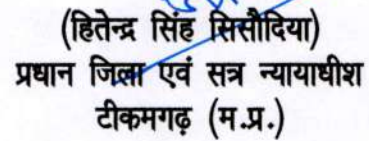 (हितेन्द्र सिंह सिसौदिया)
प्रधान जिला एवं सत्र न्यायाधीश
टीकमगढ़ (म.प्र.)